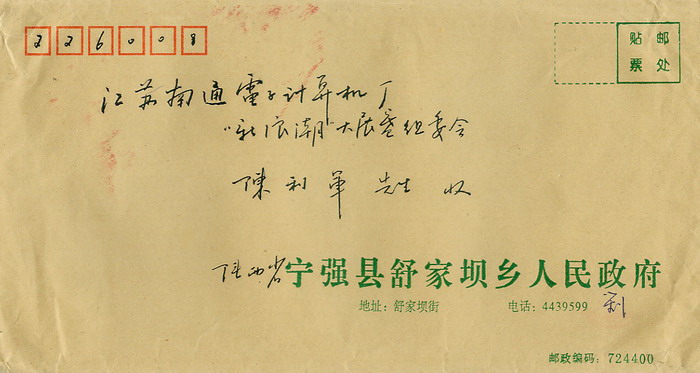 226008
贴邮
票处
江苏南通電子计算机厂
"新浪潮"大展赛组委会
陳利军先生 收
陕西省宁强县舒家坝乡人民政府
地址：舒家坝街 电话：4439599
邮政编码：724400